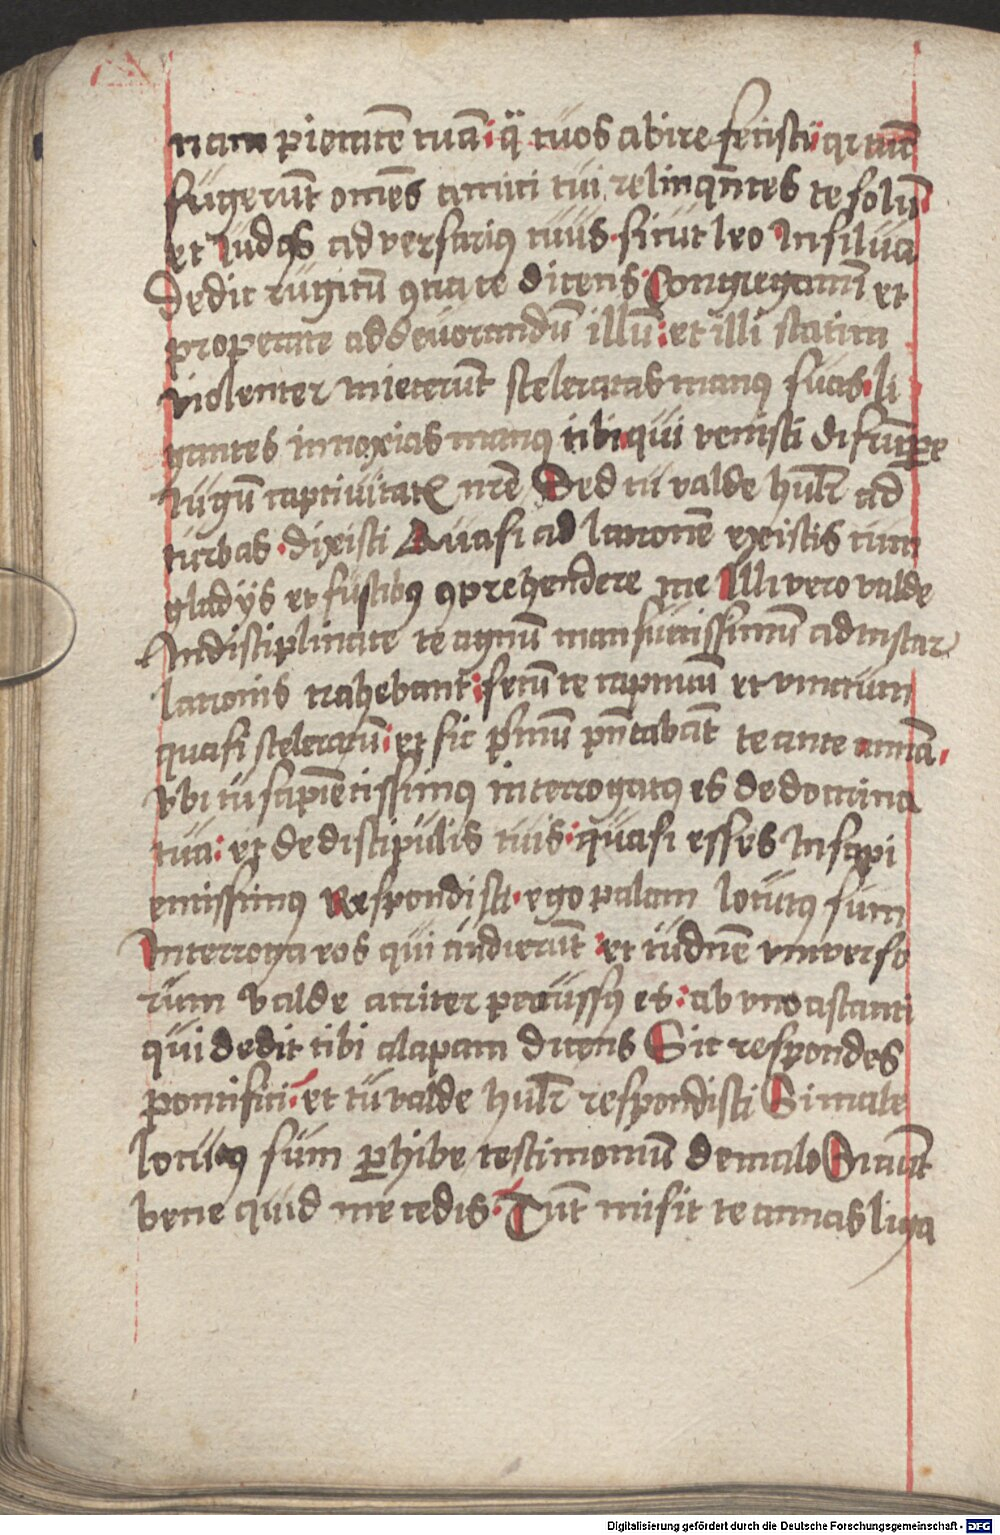 nam pietatē tuā · q̄ tuos abire fecisti · qr tūc
fugerūt om̄es amici tui relinqn̄tes te solū
et iudas adversariꝯ tuus · sicut leo in silua
Dedit rugitū ꝯtra te dicens · Congregamī et
properate ad deuorandū illū : et illi statim
violenter miecerūt sceleratas manꝯ suas · li
gantes innoxias manꝯ tibi · qui venisti disrūpere
iugū captiuitatꝭ nrē Sed tu valde huľr ad
turbas · dixisti Quasi ad latronē existis cum
gladys et fustibꝯ ꝯprehendere me Illi vero valde
Indisciplinate te agnū mansuetissimū ad instar
latronis trahebant : secū te captiuū et vinctum
quasi sceleratū · et sic p̄mū pn̄tabāt te ante annā ·
vbi tu sapiētissimꝯ interrogatꝯ es de doctrina
tua : et de discipulis tuis · quasi esses Insapi
entissimꝯ Respondisti · ego palam locutꝯ sum
Interroga eos qui audierūt · et tādūē vniverso
rum valde acriter percussꝯ es : ab vno astanti
qui dedit tibi alapam dicens Sic respondes
pontifici · et tu valde huľr respondisti Si male
locutꝯ sum ꝑhibe testimoniū de malo Si autē
bene quid me cedis · Tūc misit te annas liga